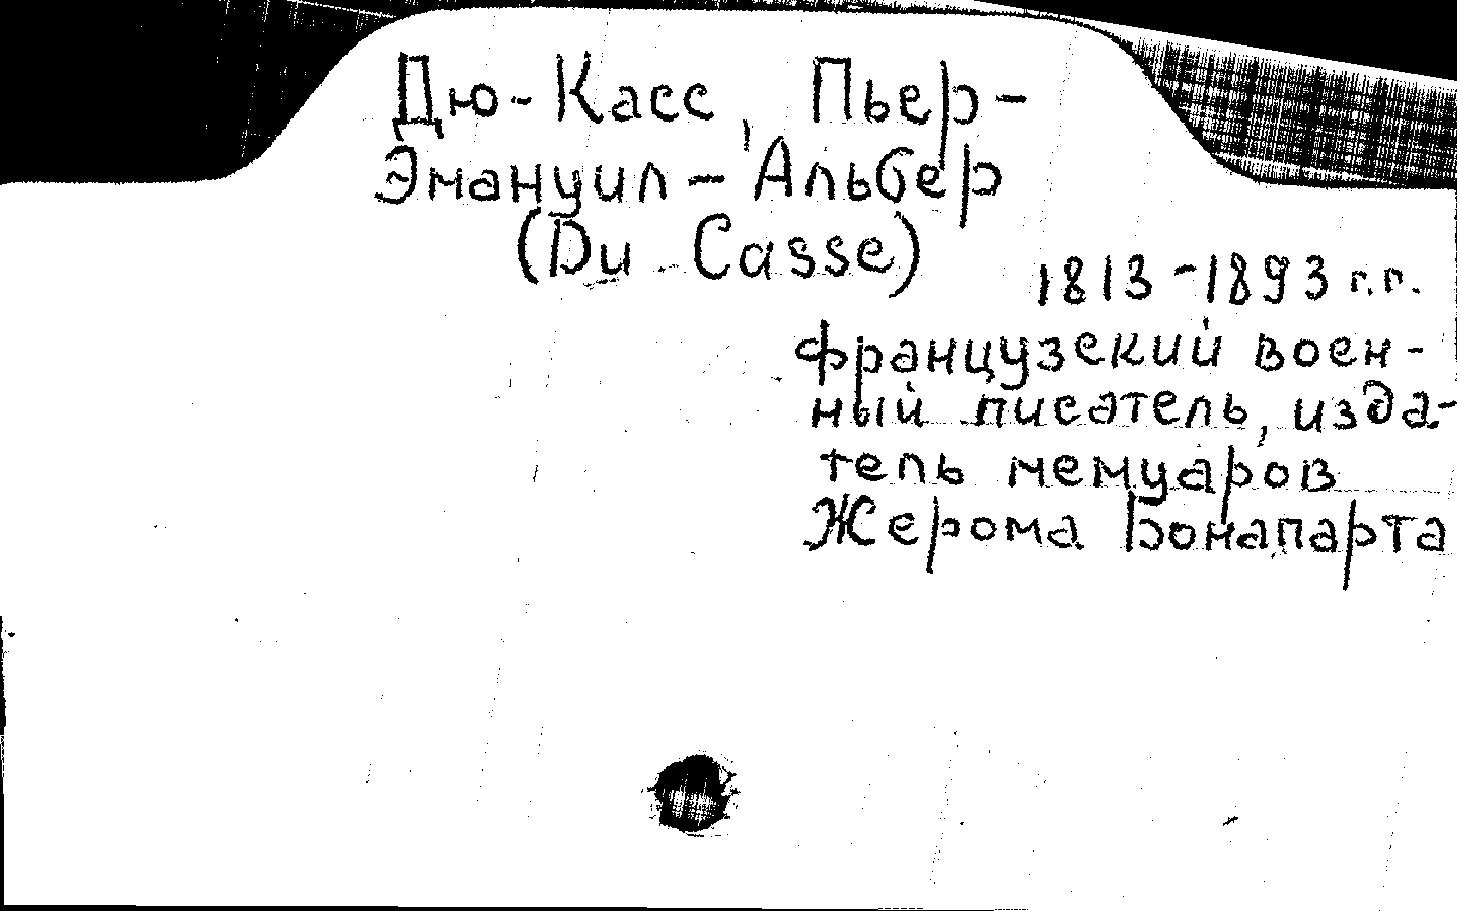 Дю-Касс, Пьер-
Эмануил-Альбер
(Du Casse)
1813-1893 г.г.
французский воен-
ный писатель, изда-
тель мемуаров
Жерома Бонапарта